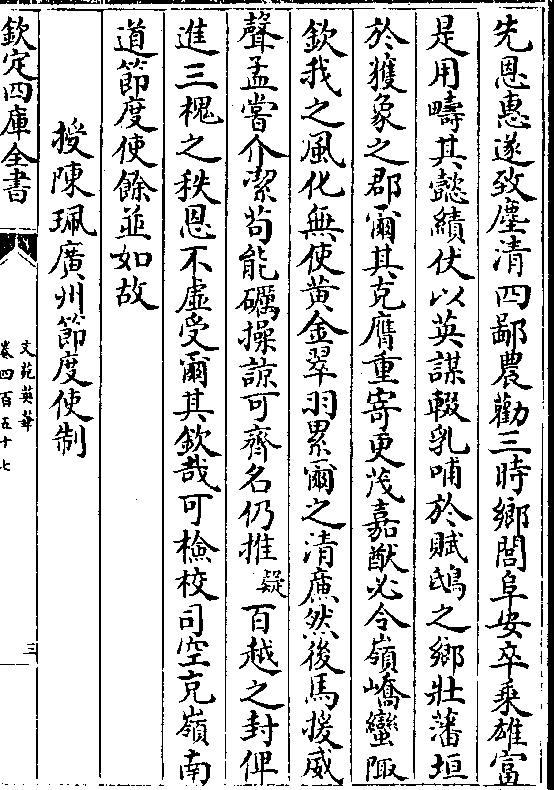 先恩惠遂致塵清四鄙農勸三時鄉閭阜安卒乗雄富
是用疇其懿績伏以英謀輟乳哺於賦鴟之鄉壯藩垣
於獲象之郡爾其克膺重寄更茂嘉猷必令嶺嶠蠻陬
欽我之風化無使黄金翠羽累爾之清廉然後馬援威
聲孟嘗介潔茍能礪操諒可齊名仍推疑百越之封俾
進三槐之秩恩不虛受爾其欽哉可檢校司空充嶺南
道節度使餘並如故
授陳珮廣州節度使制
欽定四庫全書
文苑英華
卷四百五十七
三